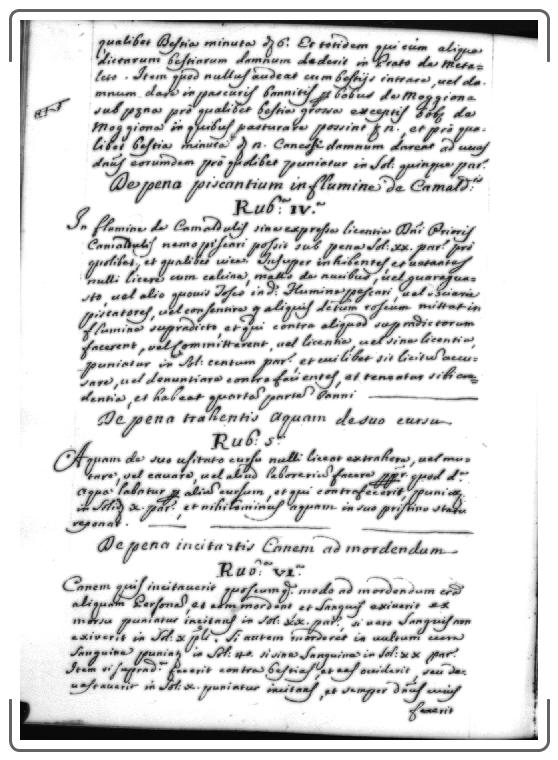 qualibet Bestia minuta d. 6. Et totidem qui cum aliqua
dictarum bestiarum damnum dederit in Prato da Meta=
leto. Item quod nullus audeat cum bestijs intrare, vel da-
mnum dare in pascuis bannitis p bobus de Moggiona
sub pęna pro qualibet bestia grossa exceptis
Moggiona in quibus pasturare possint et pro qua-
libet bestia minuta damnum darent ad
eorumdem pro quolibet puniatur in Sol: quinque par:
De pena piscantium in flumine de Camald:
Rub. IV.
In flumine de Camaldulis sine expressa licentia Dni Prioris
Camaldulis nemo piscari possit sub pena Sol: xx. par: pro
quolibet, et qualibet vice. Insuper inhibentes et vetantes
nulli licere cum calcina, mallo de nucibus, vel guaragua-
sto, vel alio quovis Tosco in d: Flumine piscari, vel
piscatores, vel consentire q aliquis dictum toscum mittat in
flumine supradicto, et qui contra aliquod supradictorum
facerent, vel committerent, vel licentia, vel sine licentia,
puniatur in Sol: centum par: et cuilibet sit licitum accu=
sare, vel denuntiare contra facientes, et teneatur sibi cre=
dentia, et habeat quartam partem Banni
De pena trahentis Aquam de suo cursu
Rub: 5.
Aquam de suo usitato cursu nulli liceat extrahere, vel mu-
tare, vel cavare, vel aliud laborerium facere quod d.
aqua labatur p alium cursum, et qui contrafecerit, puniat
in Solid x par: et nihilominus aquam in suo pristino statu
reponat.
De pena incitantis Canem ad mordendum
Rub. VI.
Canem quis incitaverit quoscumq. modo ad mordendum
aliquam Personam, et eam mordeat et Sanguis exiverit ex
morsu puniatur incitans in Sol: xx. par: si vero Sanguis non
exiverit in Sol: x Si autem morderet in vultum cum
Sanguine puniat in Sol: si sine Sanguine in Sol: xx par:
Item si supradi fecerit contra bestias, et eas occiderit, seu de-
vastaverit in Sol: x. puniatur incitans, et semper
fuerit